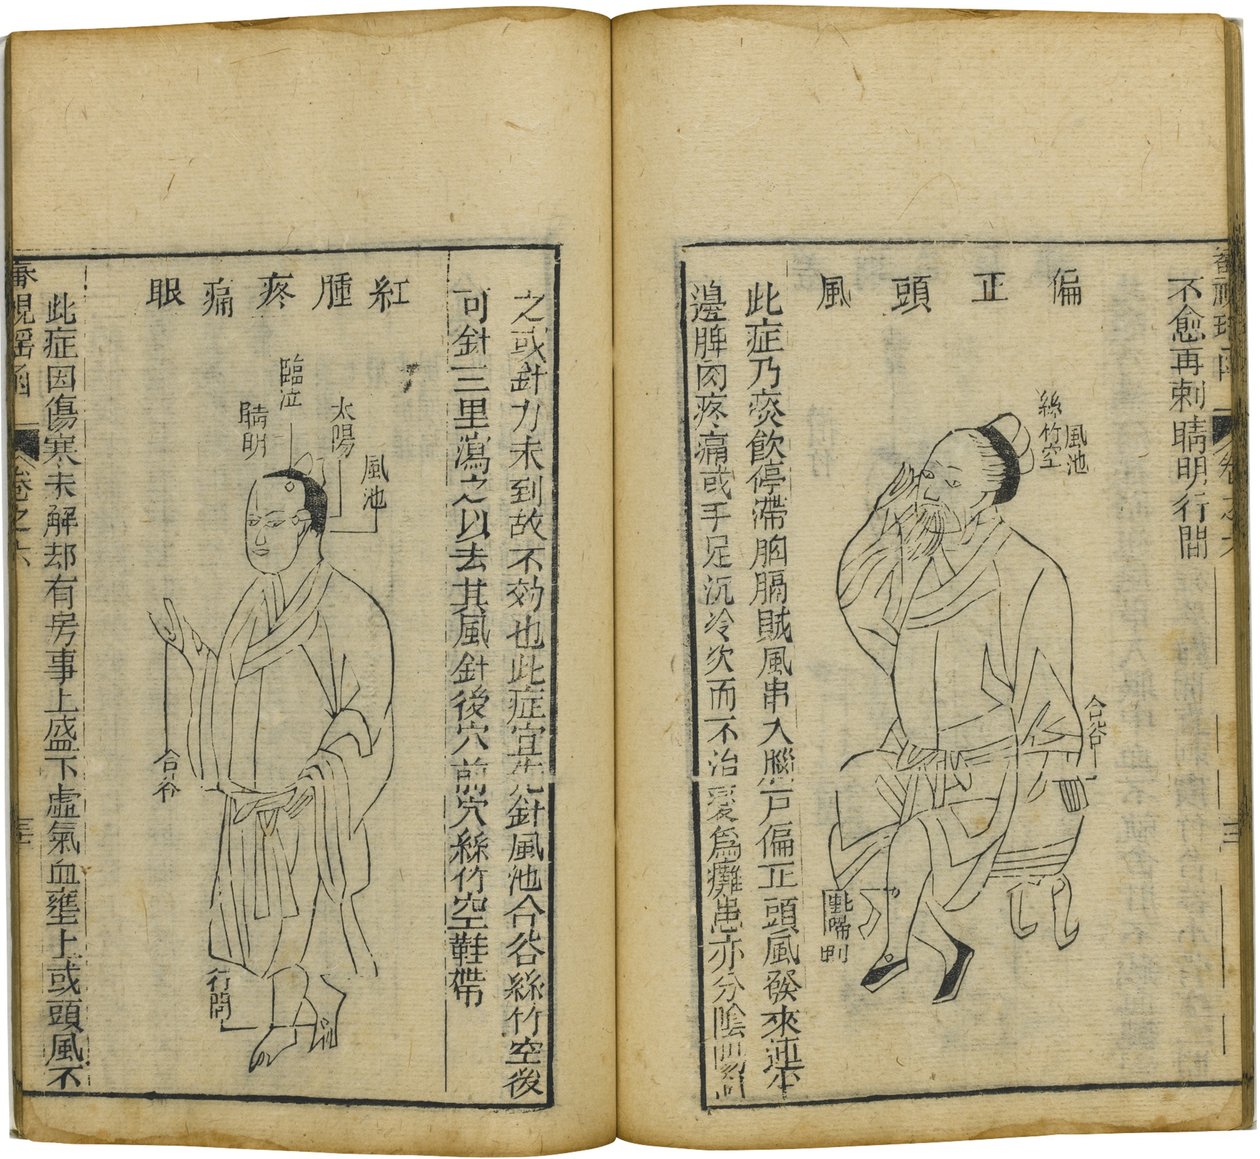 卷之六
不愈再刺睛明行間
偏正頭風
風池
絲竹空
合谷
此症乃痰飲停滯胸膈賊風串入腦戶偏正頭風發來連半
邊脾肉疼痛或手足沉冷久而不治變爲癱患亦分陰
之或針力未到故不効也此症宜先針風池合谷絲竹空後
可針三里瀉之以去其風針後穴前穴絲竹空鞋帶
紅腫疼痛眼
風池
太陽
臨泣
睛明
合谷
行間
此症因傷寒未解却有房事上盛下虛氣血壅上或頭風不
審視瑤函
卷之六